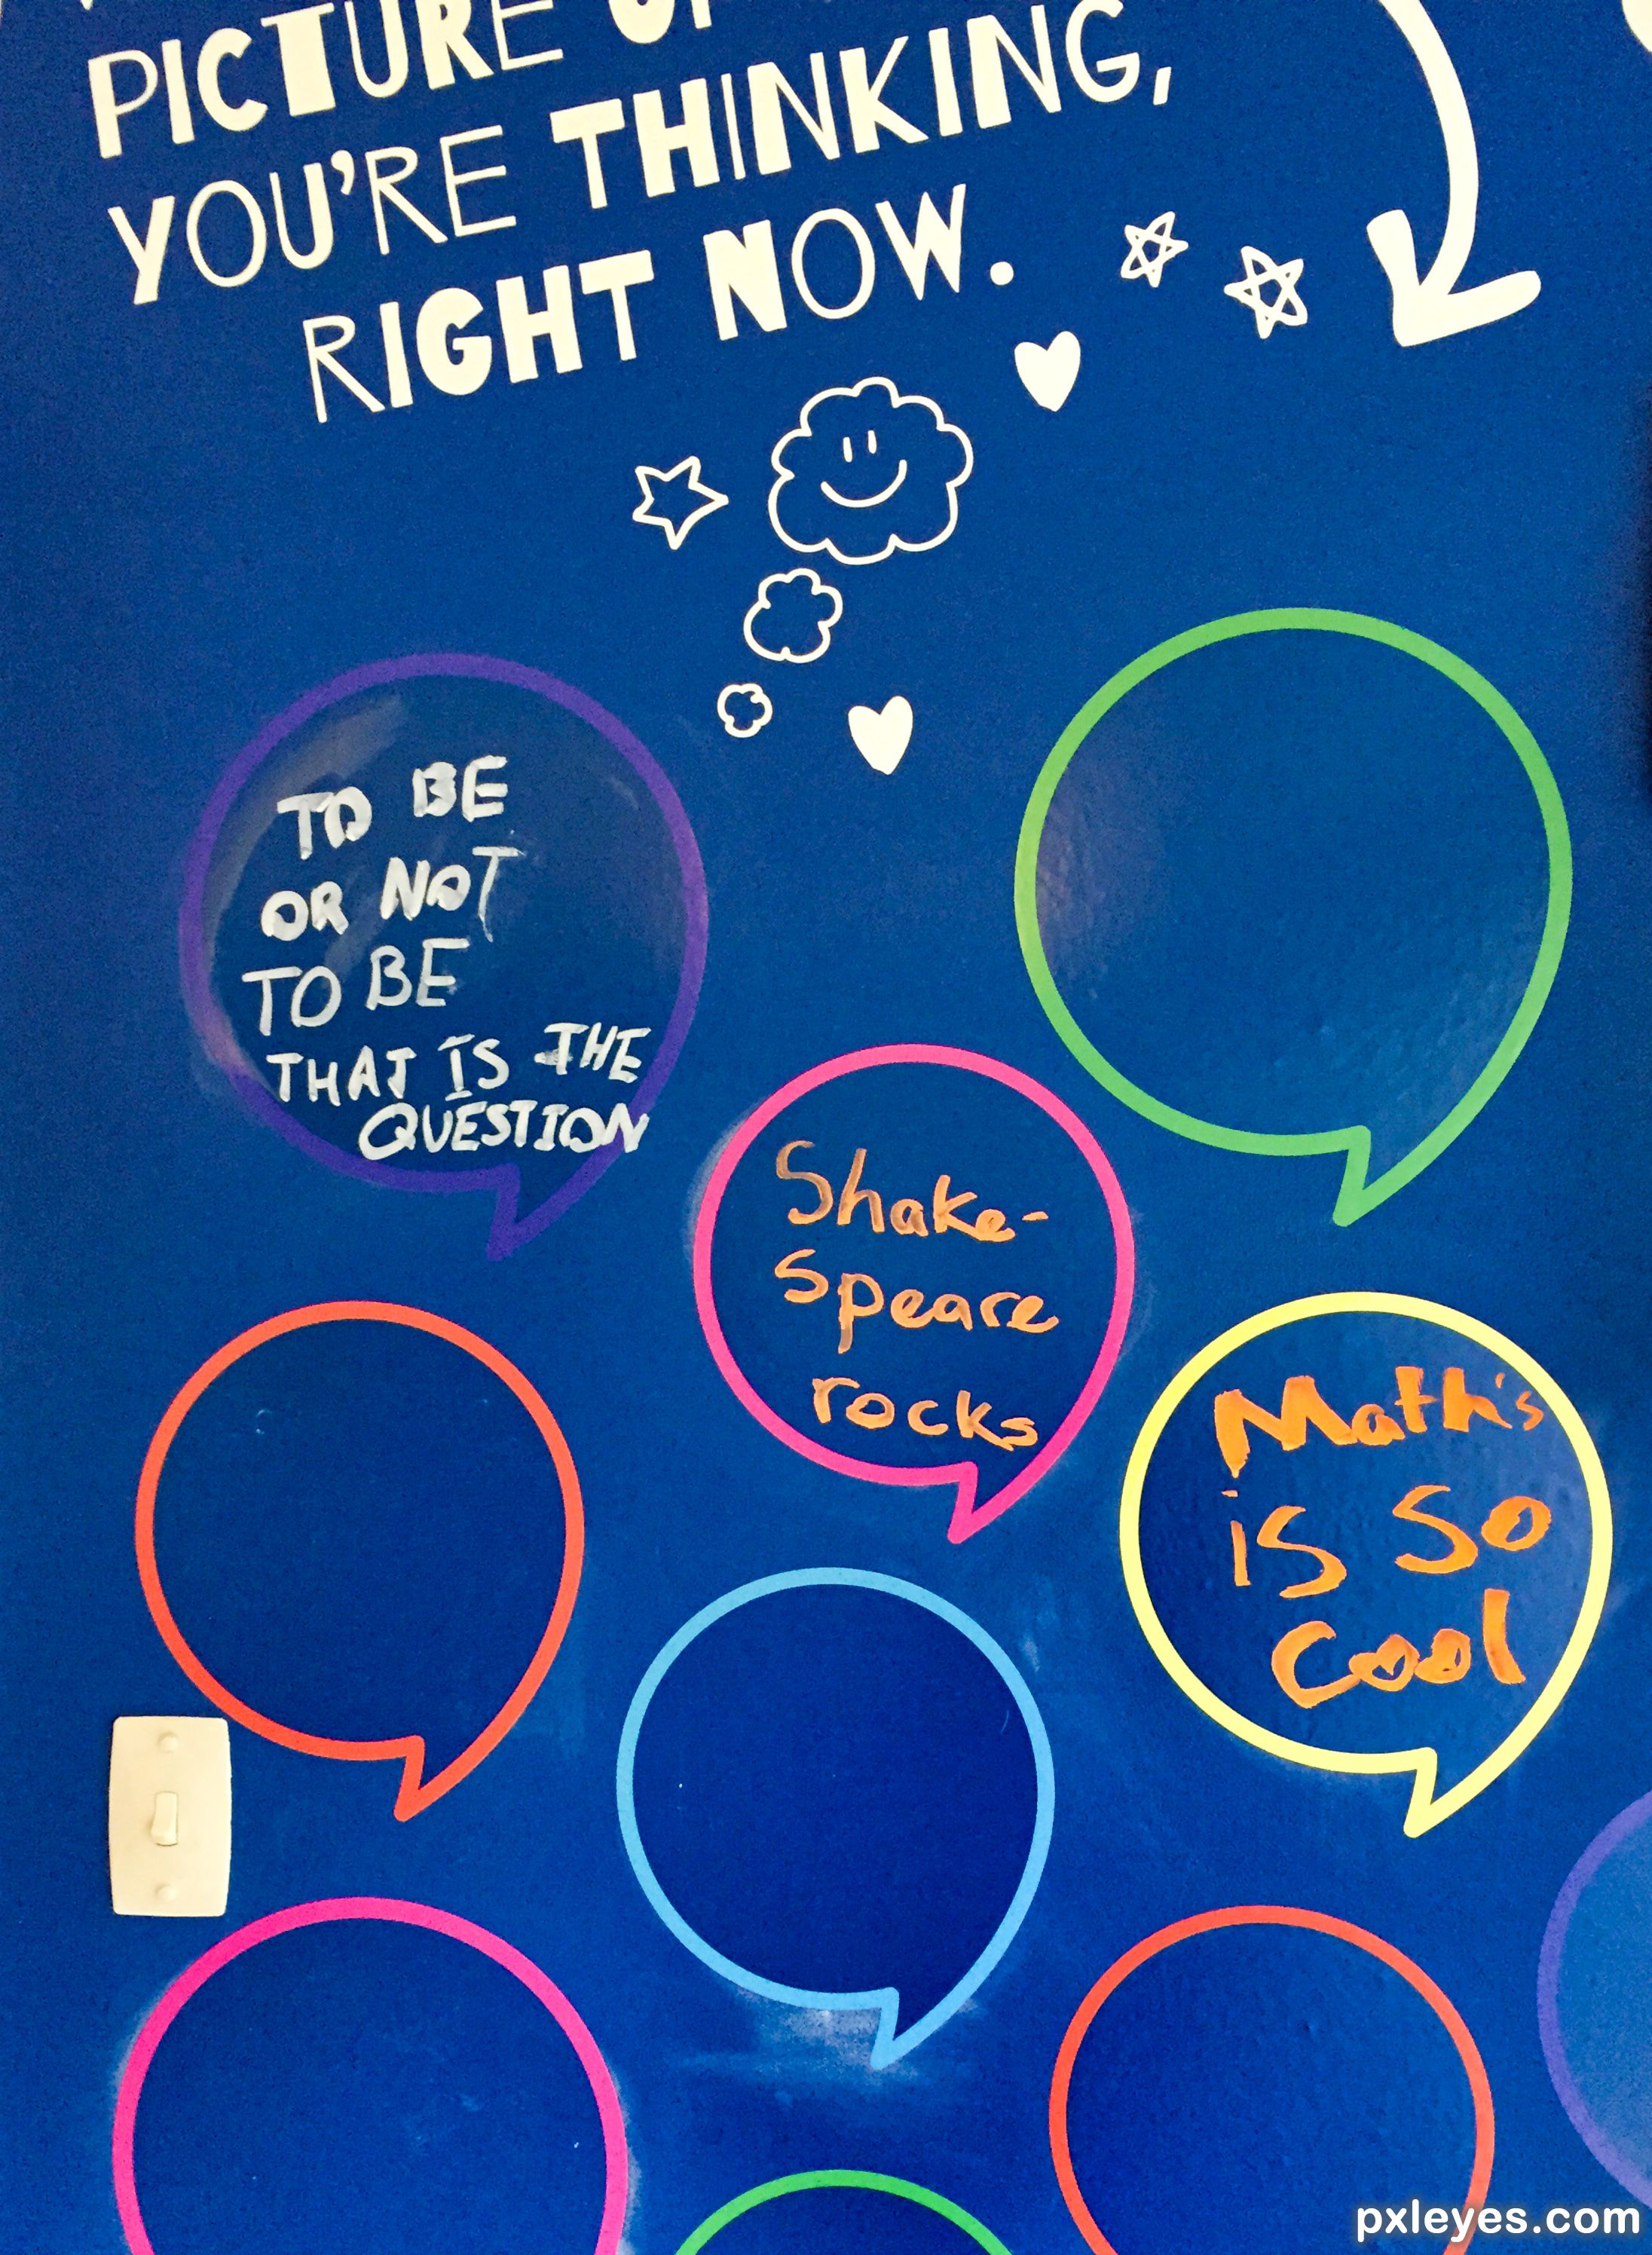 PICTURE OF
YOU'RE THINKING,
RIGHT NOW.
TO BE
OR NOT
TO BE
THAT IS THE
QUESTION
Shake-
Speare
rocks
Math's
is so
cool
pxleyes.com